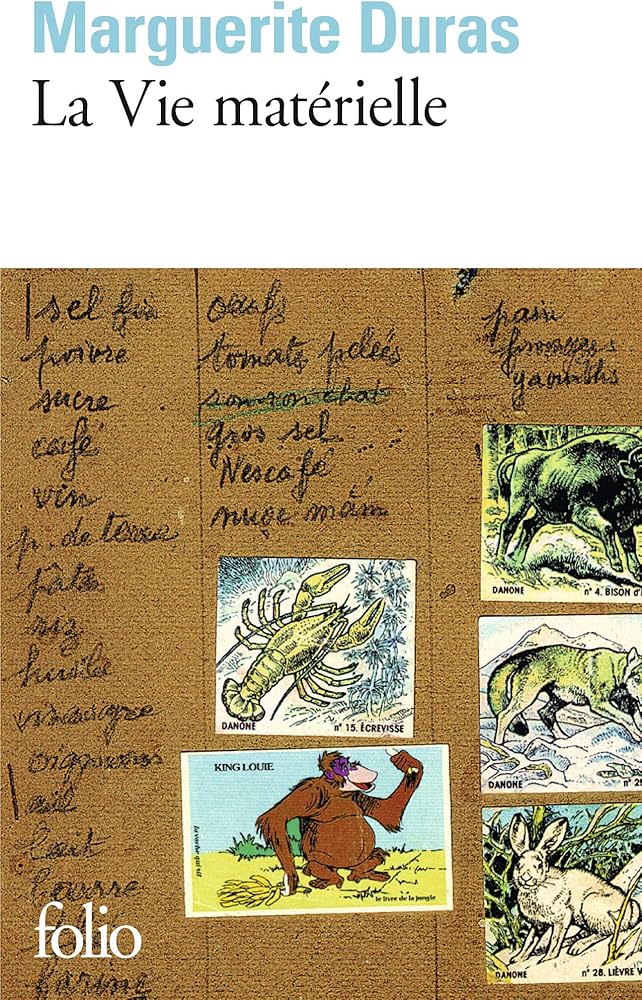 Marguerite Duras
La Vie matérielle
sel fin
poivre
sucre
café
vin
p. de terre
pâtes
riz
huile
vinaigre
oignons
ail
lait
beurre
farine
oeufs
tomate pelées
gros sel
Nescafé
nuoc mâm
pain
fromages
yaourths
DANONE n° 4. BISON d'
DANONE n° 15. ÉCREVISSE
DANONE n° 2
KING LOUIE
la vache qui rit
le livre de la jungle
DANONE n° 28. LIÈVRE V
folio